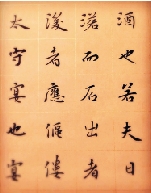 酒也若夫日
落而石出者
後者應傴僂
太守宴也宴